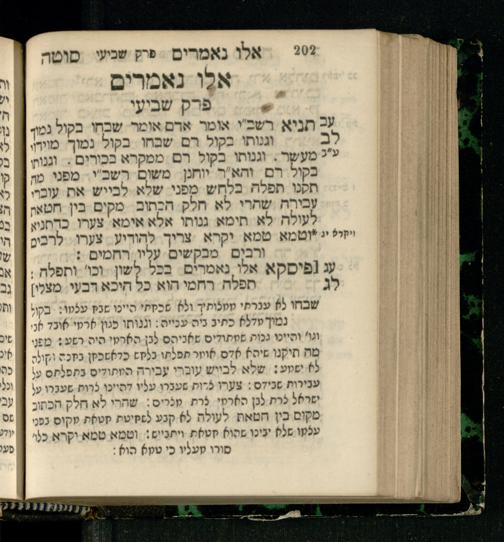 אלו נאמרים פרק שביעי סוטה 202
אלו נאמרים
פרק שביעי
עב תניא רשב״י אומר אדם אומר שבחו בקול נמוך
לב וגנותו בקול רם שבחו בקול נמוך מוידוי
ע״ב מעשר. וגנותו בקול רם ממקרא בכורים. וגנותו
בקול רם והא״ר יוחנן משום רשב״י מפני מה
תקנו תפלה בלחש מפני שלא לבייש את עוברי
עבירה שהרי לא חלק הכתוב מקום בין חטאת
לעולה לא תימא גנותו אלא אימא צערו כדתניא
ויקרא יג *וטמא טמא יקרא צריך להודיע צערו לרבים
ורבים מבקשים עליו רחמים:
עג [פיסקא אלו נאמרים בכל לשון וכו׳ ותפלה:
לג תפלה רחמי הוא כל היכא דבעי מצלי]
שבחו לא עברתי ממצותיך ולא שכחתי היינו שבח עצמו: בקול
נמוך מדלא כתיב ביה ענייה: וגנותו כגון ארמי אובד אבי
וגו׳ והיינו גנות שמתודים שאביהם לבן הארמי היה רשע: מפני
מה תיקנו שיהא אדם אומר תפלתו בלחש כדאשכחן בחנה וקולה
לא ישמע: שלא לבייש עוברי עבירה המתודים בתפלתם על
עבירות שבידם: צערו צרות שעברו עליו דהיינו צרות שעברו על
ישראל צרת לבן הארמי צרת מצרים: שהרי לא חלק הכתוב
מקום בין חטאת לעולה לא קבע לשחיטת חטאת מקום בפני
עצמו שלא יבינו שהוא חטאת ויתבייש: וטמא טמא יקרא כלו׳
סורו מעליו כי טמא הוא: